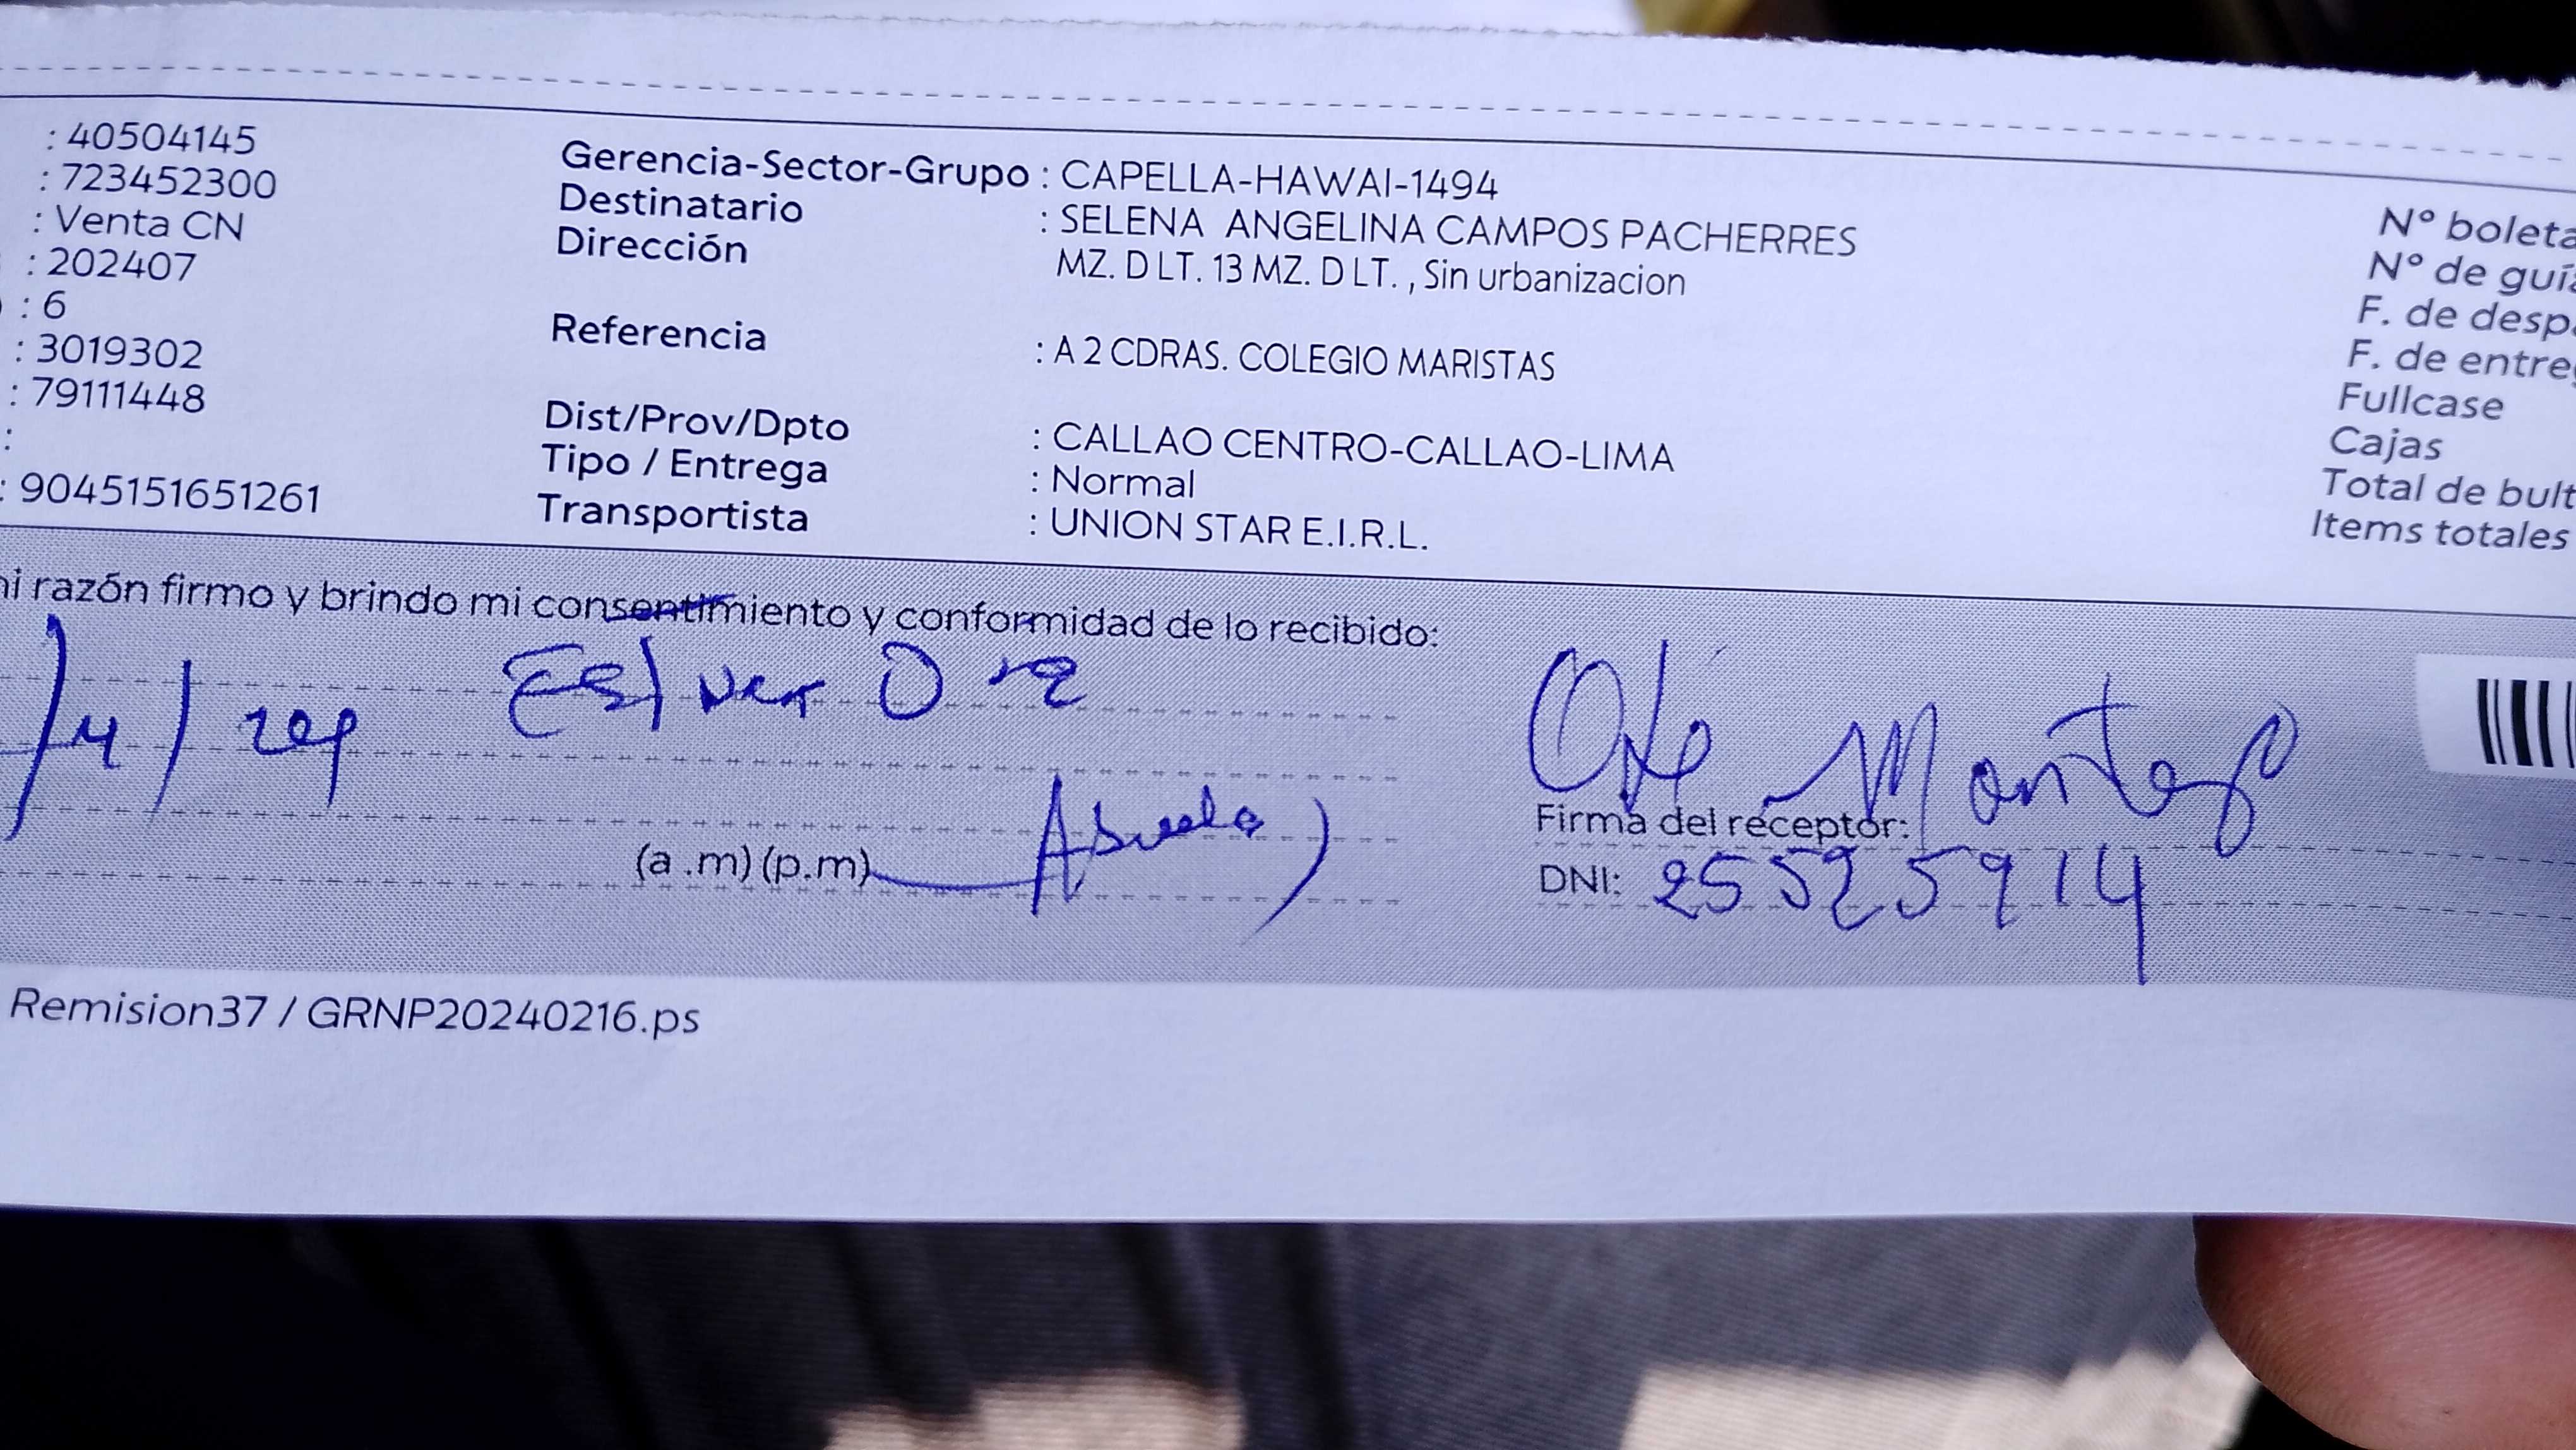 : 40504145
: 723452300
: Venta CN
: 202407
: 6
: 3019302
: 79111448
:
: 9045151651261
Gerencia-Sector-Grupo : CAPELLA-HAWAI-1494
Destinatario : SELENA ANGELINA CAMPOS PACHERRES
Dirección MZ. D LT. 13 MZ. D LT. , Sin urbanizacion
Referencia : A 2 CDRAS. COLEGIO MARISTAS
Dist/Prov/Dpto : CALLAO CENTRO-CALLAO-LIMA
Tipo / Entrega : Normal
Transportista : UNION STAR E.I.R.L.
N° boleta
N° de guía
F. de desp
F. de entre
Fullcase
Cajas
Total de bult
Items totales
mi razón firmo y brindo mi consentimiento y conformidad de lo recibido:
(a .m) (p.m) Abuela)
Firma del receptor:
DNI: 25525914
Remision37 / GRNP20240216.ps